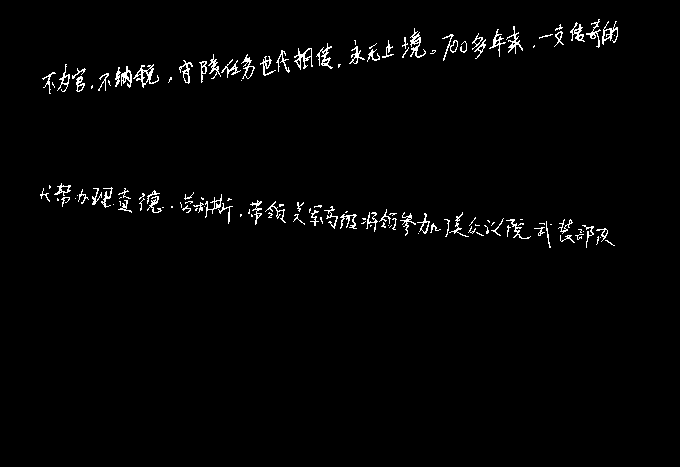 不为官,不纳税,守陵任务世代相传,永无止境。700多年来,一支传奇的
代帮办理查德·劳利斯,带领美军高级将领参加了众议院武装部队